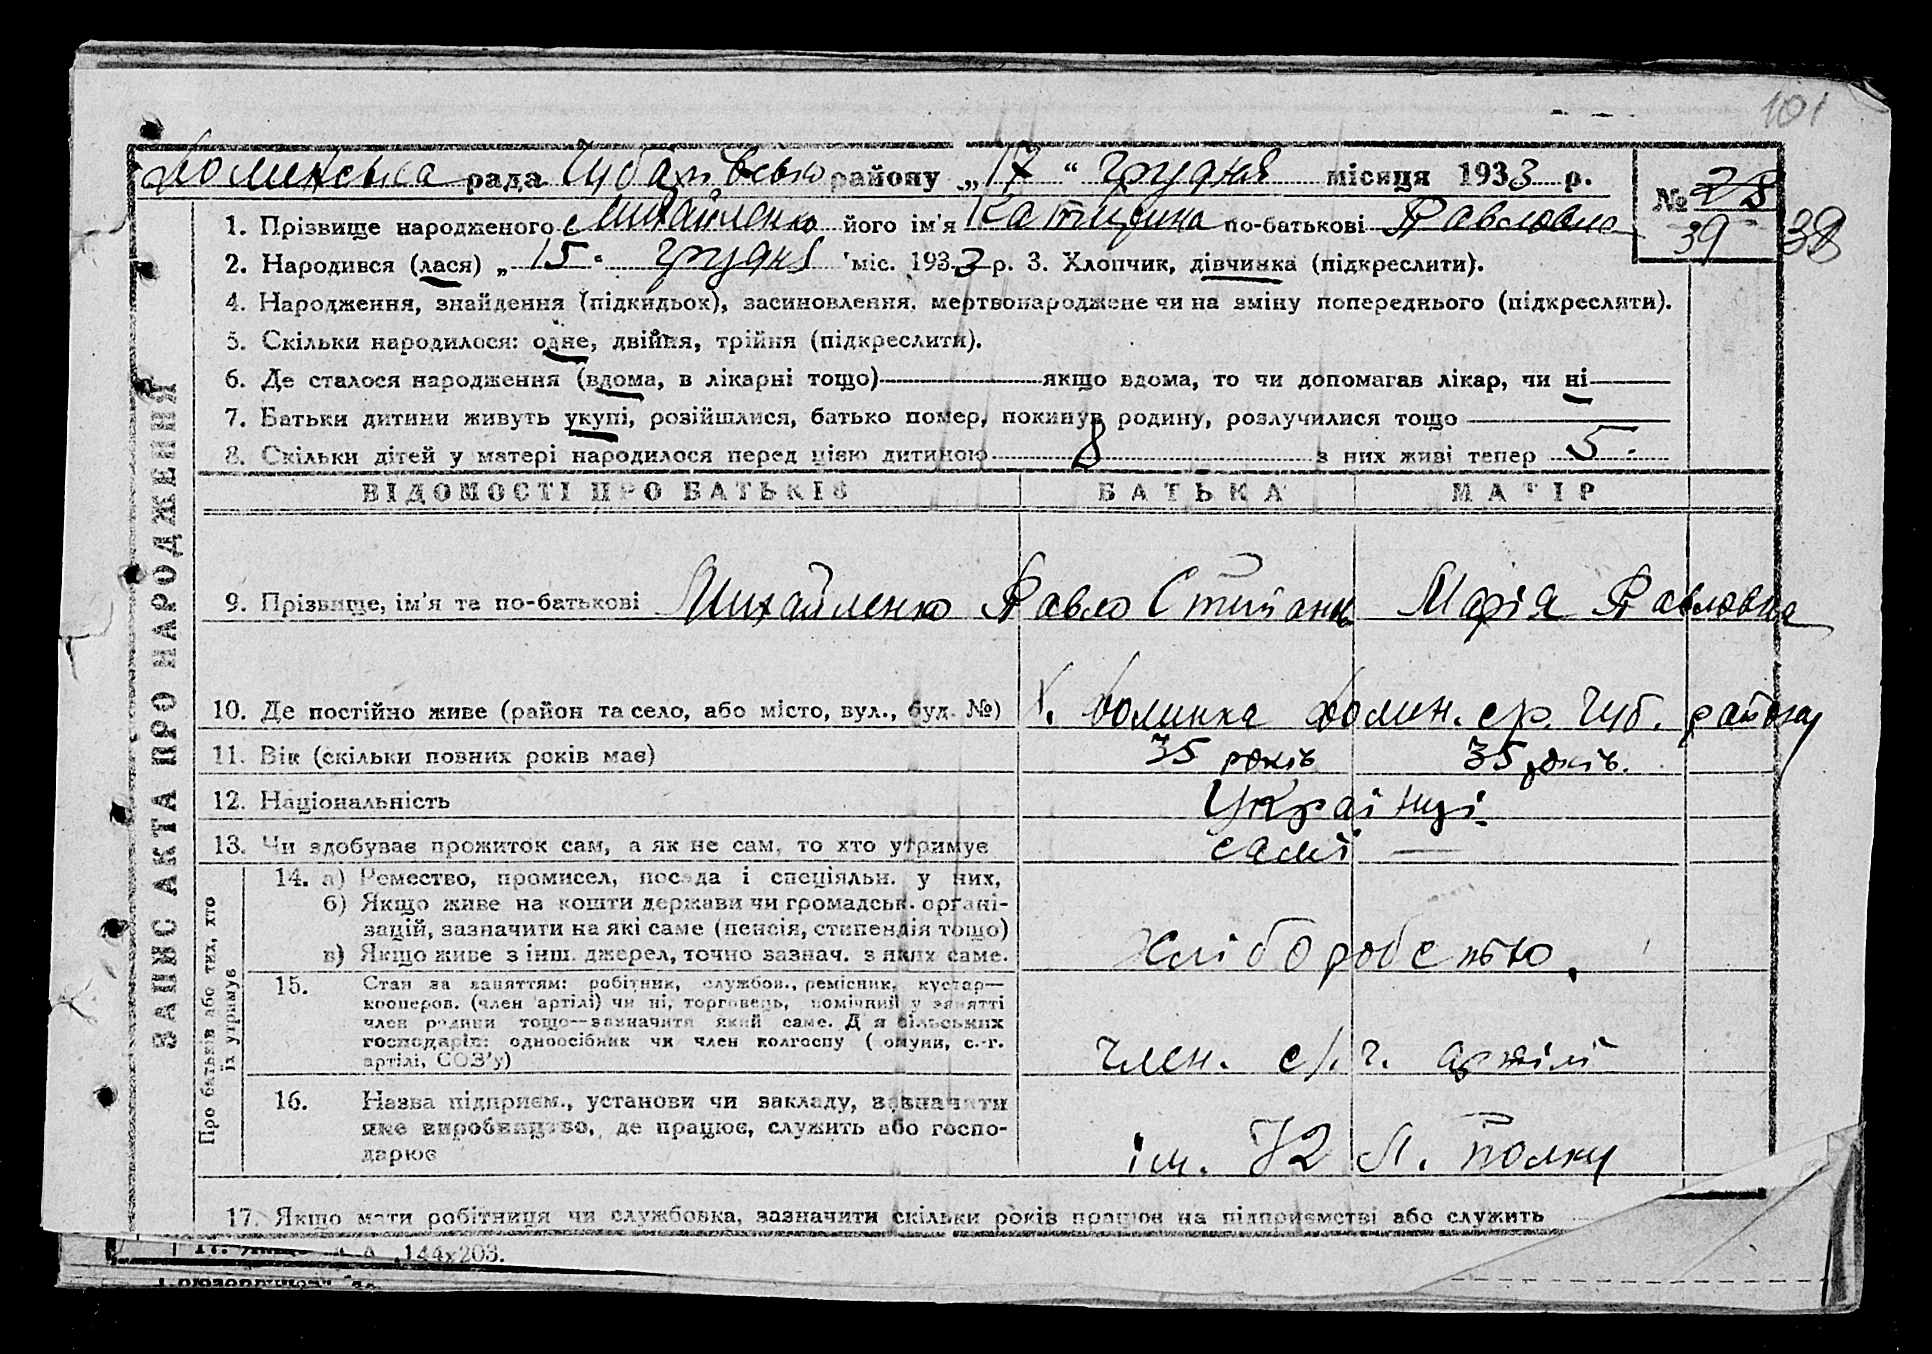 101
Долинська рада Чубарівсько району „17“ грудня місяця 1933 р.
№ 28
39 38
1. Прізвище народженого Михайленко його ім'я Катерина по-батькові Павловна
2. Народився (лася) „15“ грудня міс. 1933 р. 3. Хлопчик, дівчинка (підкреслити).
4. Народження, знайдення (підкидьок), засиновлення, мертвонароджене чи на зміну попереднього (підкреслити).
5. Скільки народилося: одне, двійня, трійня (підкреслити).
6. Де сталося народження (вдома, в лікарні тощо) якщо вдома, то чи допомагав лікар, чи ні
7. Батьки дитини живуть укупі, розійшлися, батько помер, покинув родину, розлучилися тощо
8. Скільки дітей у матері народилося перед цією дитиною 8 з них живі тепер 5.
ВІДОМОСТІ ПРО БАТЬКІВ БАТЬКА МАТІР
9. Прізвище, ім'я та по-батькові Михайленко Павло Степан Марія Павловна
10. Де постійно живе (район та село, або місто, вул., буд. №) х. Долинка Долин. с/р. Чуб. району
11. Вік (скільки повних років має) 35 років 35 років.
12. Національність Українці
13. Чи здобуває прожиток сам, а як не сам, то хто утримує самі —
14. а) Ремество, промисел, посада і спеціяльн. у них,
б) Якщо живе на кошти держави чи громадськ. органі-
зацій, зазначити на які саме (пенсія, стипендія тощо)
в) Якщо живе з інш. джерел, точно зазнач. з яких саме.
хліборобство.
15. Стан за заняттям: робітник, службов., ремісник, кустар—
кооперов. (член артілі) чи ні, торговець, помічний у занятті
член родини тощо—зазначити який саме. Для сільських
господарів: одноосібник чи член колгоспу (комуни, с.-г.
артілі, СОЗ'у)
член. с/г. артілі
16. Назва підприєм., установи чи закладу, зазначити
яке виробництво, де працює, служить або госпо-
дарює
ім. 72 п. полку
17. Якщо мати робітниця чи службовка, зазначити скільки років працює на підприємстві або служить
ЗАПИС АКТА ПРО НАРОДЖЕННЯ
Про батьків або тих, хто
їх утримує
144x203.